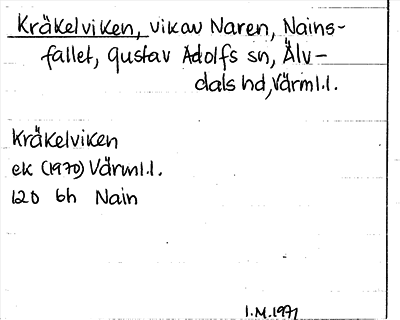 Kräkelviken, vik av Naren, Nains-
fallet, Gustav Adolfs sn, Älv-
dals hd, Värml.l.
Kräkelviken
ek (1970) Värml.l.
12D 6h Nain
I.M. 1971